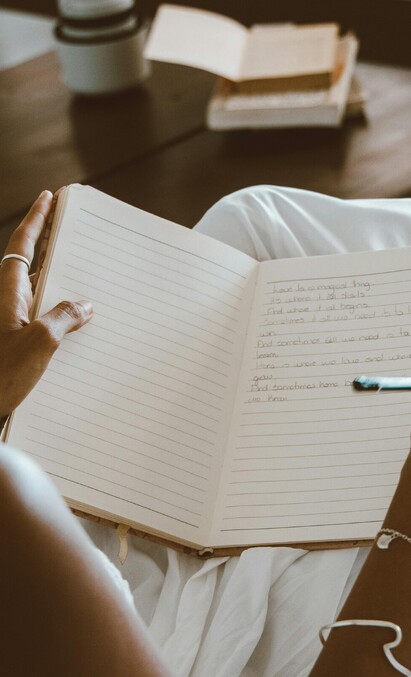 Love is a magical thing.
It's where it all starts
And where it all begins
Sometimes it all we need is to
win.
And sometimes all we need is to
learn.
Home is where we love and we
grow.
And sometimes home
we